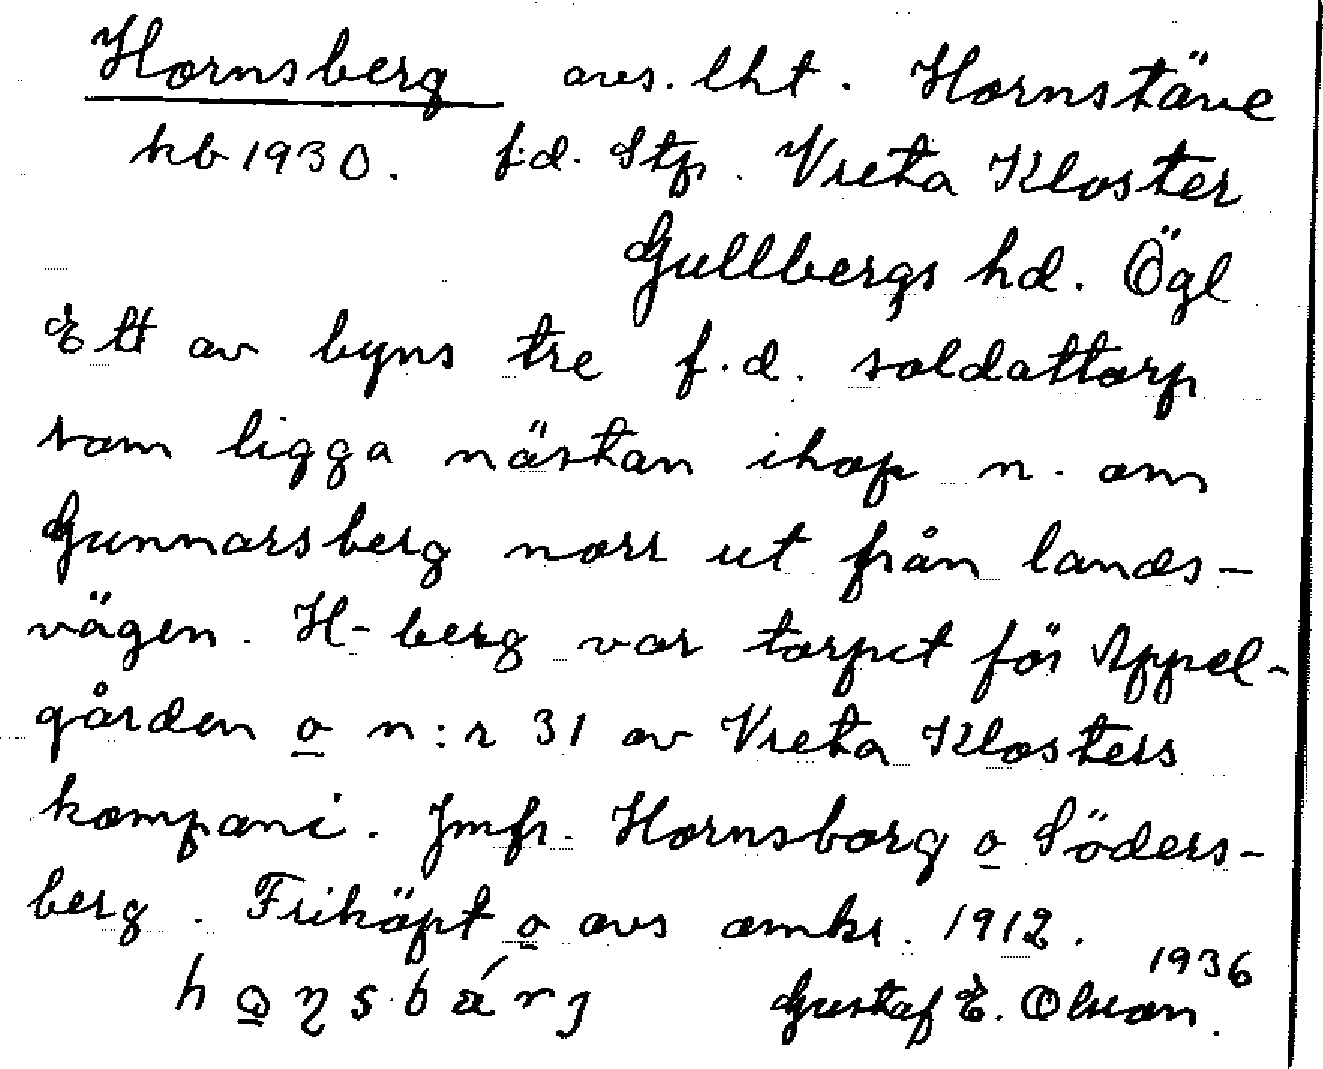 Hornsberg avs. lht. Hornstäve
kb 1930. f.d. Stp. Vreta Kloster
Gullbergs hd. Ögl
Ett av byns tre f.d. soldattorp
som ligga nästan ihop n. om
Gunnarsberg norr ut från lands-
vägen. H-berg var torpet för Appel-
gården o n:r 31 av Vreta Klosters
kompani. Jmfr. Hornsborg o Söders-
berg. Friköpt o avs omkr. 1912.
1936
Gustaf E. Olson.